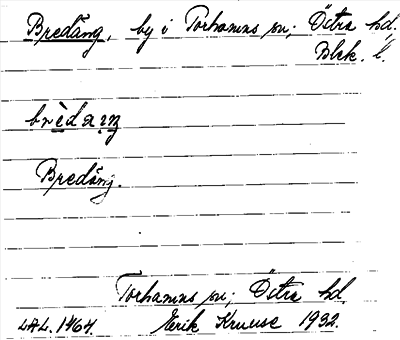 Bredäng, by i Torhamns sn; Östra hd.
Blek. l.
brèdaŋ
Bredäng.
Torhamns sn; Östra hd.
LAL. 1464. Erik Kruuse 1932.